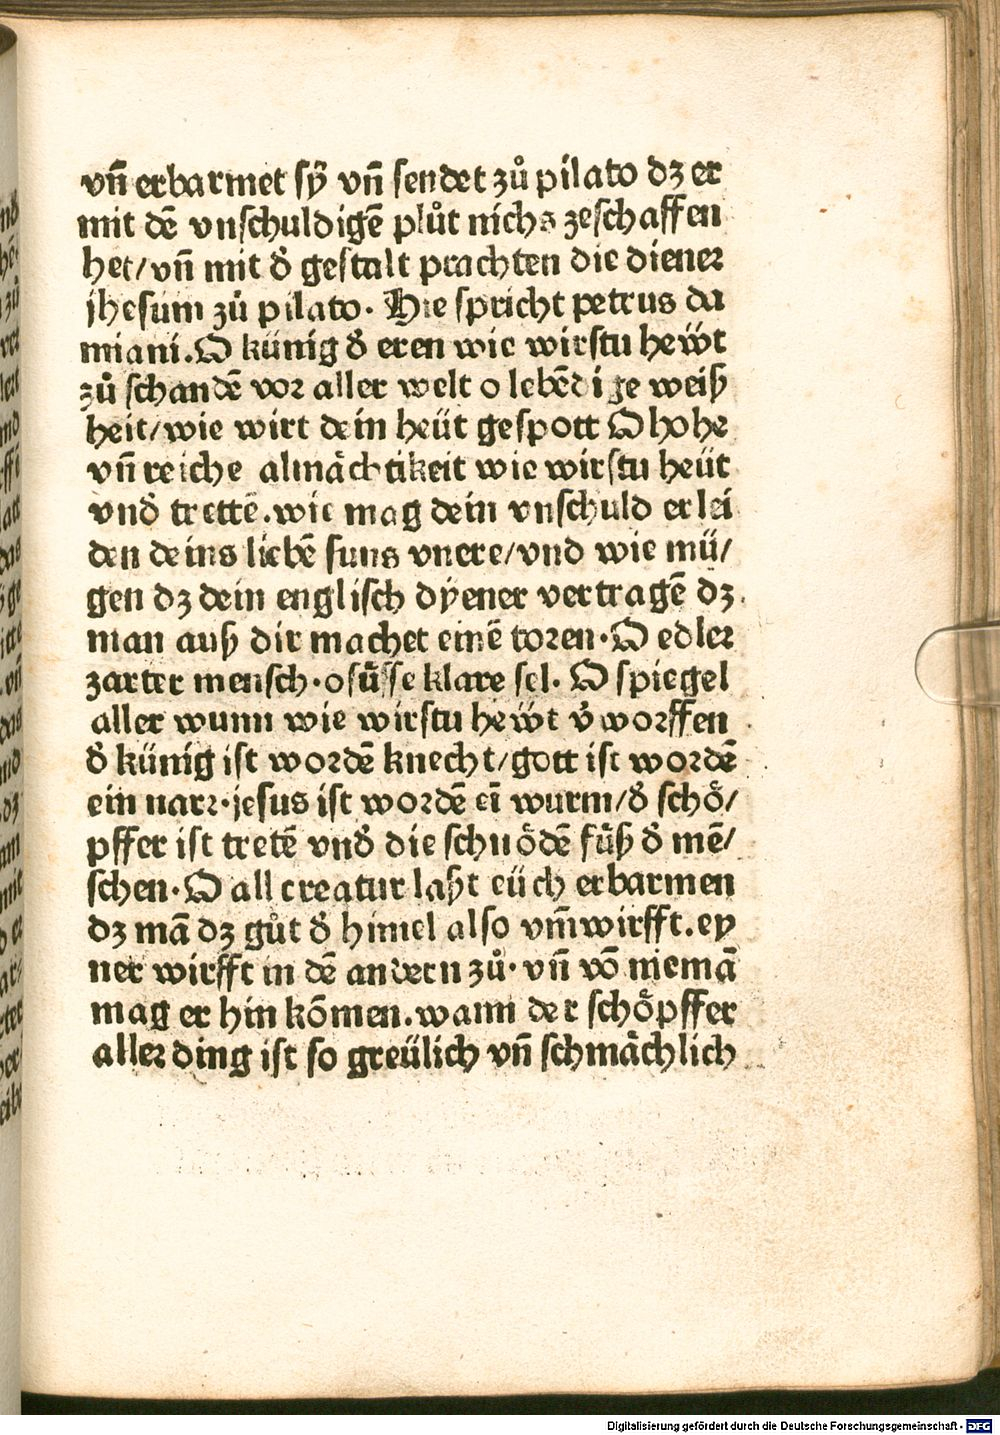 vn̄ erbarmet sÿ vn̄ sendet zů pilato dz er
mit dē vnschuldigē plůt nichs zeschaffen
het/vn̄ mit d̕ gestalt prachten die diener
jhesum zů pilato. Hie spricht petrus da
miani. O künig d̕ eren wie wirstu hewt
zů schandē vor aller welt o lebēdige weiß
heit/wie wirt dein heüt gespott O hohe
vn̄ reiche almächtikeit wie wirstu heüt
vnd̕ trettē. wie mag dein vnschuld erlei
den deins liebē suns vnere/vnd wie mü/
gen dz dein englisch dÿener vertragē dz
man auß dir machet einē toren. O edler
zarter mensch. o sůsse klare sel. O spiegel
aller wunn wie wirstu hewt v̕worffen
d̕ künig ist wordē knecht/gott ist wordē
ein narr. jesus ist wordē eī wurm/d̕ schö/
pffer ist tretē vnd̕ die schnödē fůß d̕ mē/
schen. O all creatur laßt eüch erbarmen
dz mā dz gůt d̕ himel also vm̄wirfft. ey
ner wirfft in dē andern zů. vn̄ vō niemā
mag er hin kōmen. wann der schöpffer
aller ding ist so greülich vn̄ schmächlich
Digitalisierung gefördert durch die Deutsche Forschungsgemeinschaft - DFG